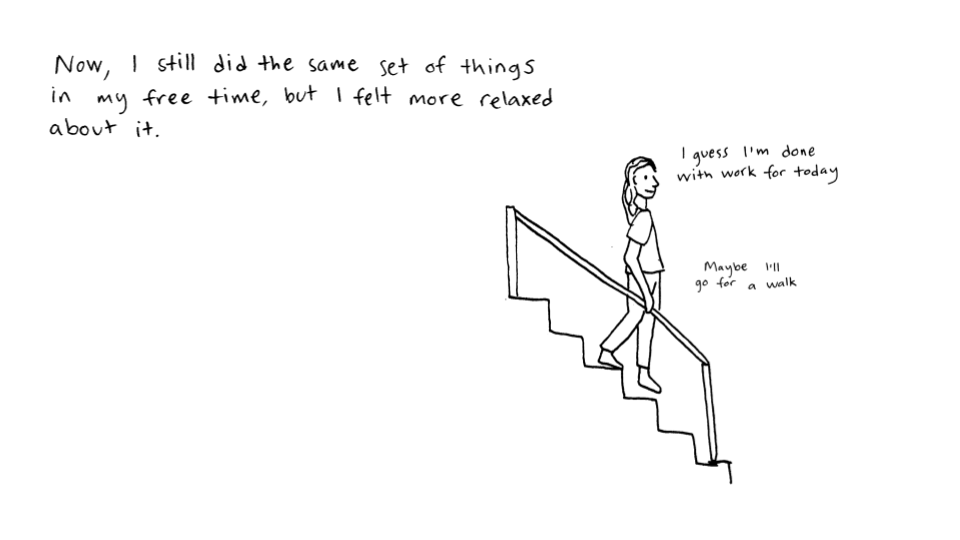 Now, I still did the same set of things
in my free time, but I felt more relaxed
about it.
I guess I'm done
with work for today
Maybe I'll
go for a walk